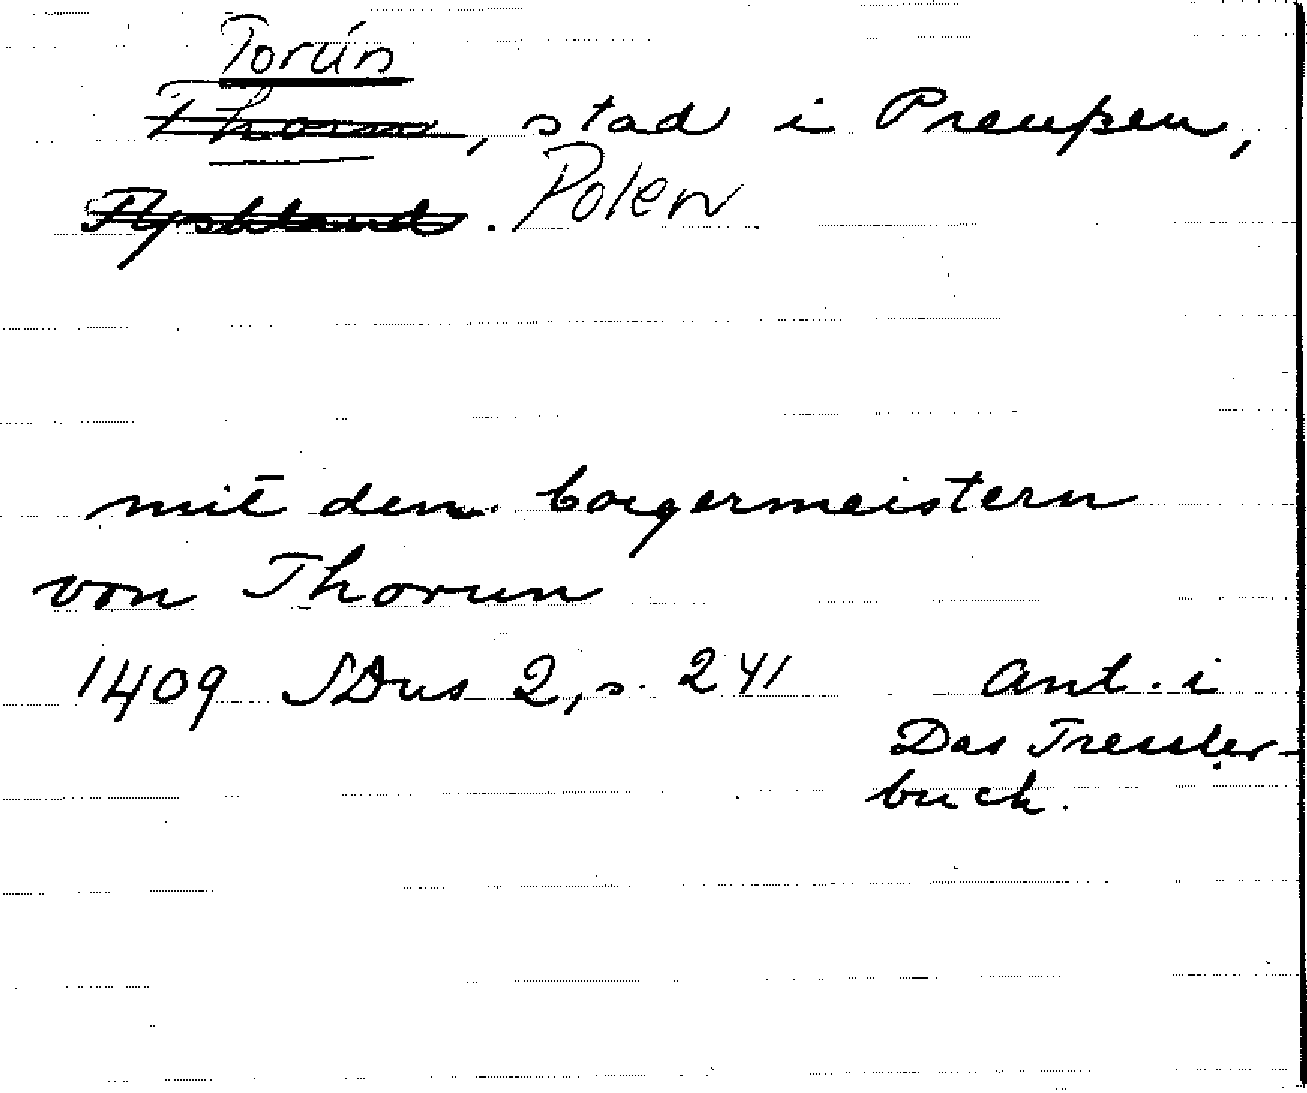 Torún
Thorn, stad i Preußen,
Tyskland. Polen
mit dem borgermeistern
von Thorun
1409 SDns 2, s. 241 Ant. i
Das Tressler-
buch.